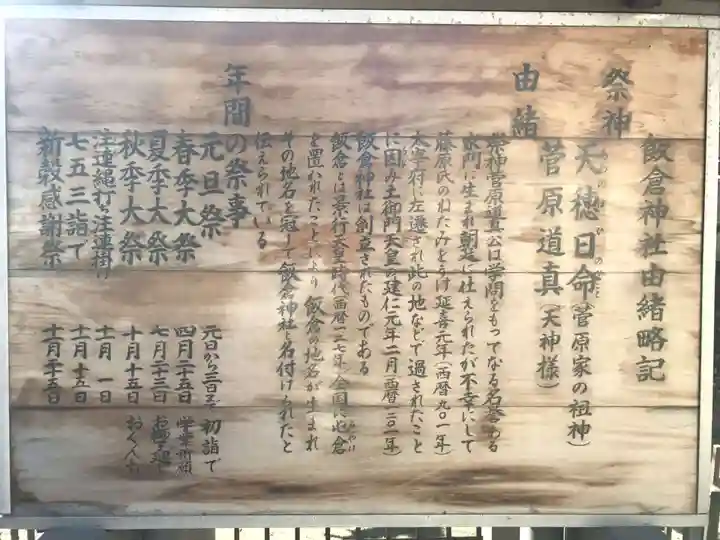 飯倉神社由緒略記
祭神
天穂日命(菅原家の祖神)
菅原道真(天神様)
由緒
祭神菅原道真公は学問をもってなる名誉ある
家門に生まれ朝廷に仕えられたが不幸にして
藤原氏のねたみをうけ延喜元年(西暦九〇一年)
太宰府に左遷され此の地などで過されたこと
に因み土御門天皇の建仁元年二月(西暦一二〇一年)
飯倉神社は創立されたものである
飯倉とは景行天皇時代(西暦一二七年)全国に屯倉
を置かれたことにより飯倉の地名が生まれ
その地名を冠して飯倉神社と名付けられたと
伝えられている
年間の祭事
元旦祭 元日から三日まで 初詣で
春季大祭 四月二十五日 学業祈願
夏季大祭 七月二十三日
秋季大祭 十月十五日 おくんち
注連縄打ち注連掛け 十一月一日
七五三詣で 十一月十五日
新穀感謝祭 十一月二十五日